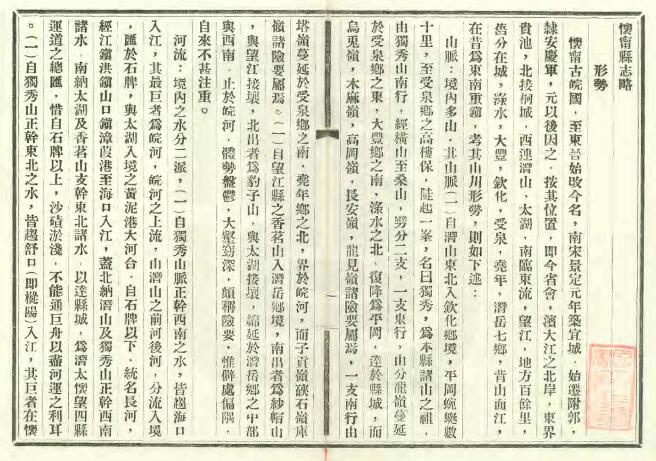 懷甯縣志略
形勢
懷甯古皖國，至東晉始改今名，南宋景定元年築宜城，始遷附郭，
隸安慶軍，元以後因之，按其位置，卽今省會，濱大江之北岸，東界
貴池，北接桐城，西連潛山，太湖，南臨東流，望江，地方百餘里，
舊分在城，淥水，大豐，欽化，受泉，堯年，潛岳七鄉，背山面江，
在昔爲東南重鎭，考其山川形勢，則如下述：
山脈：境內多山，其山脈（一）自潛山東北入欽化鄉境，平岡蜿蜒數
十里，至受泉鄉之高樓保，陡起一峯，名曰獨秀，爲本縣諸山之祖，
由獨秀山南行，經橫山至桑山，劈分二支，一支東行，由分龍嶺蔓延
於受泉鄉之東，大豐鄉之南，淥水之北，復降爲平岡，達於縣城，而
烏兎嶺，木麻嶺，高岡嶺，長安嶺，龍見嶺諸險要屬焉，一支南行由
塔嶺蔓延於受泉鄉之南，堯年鄉之北，界於皖河，而子貢嶺硤石嶺庫
嶺諸險要屬焉。（一）自望江縣之香茗山入潛岳鄉境，南出者爲紗帽山
，與望江接壤，北出者爲豹子山，與太湖接壤，綿延於潛岳鄉之中部
與西南，止於皖河，體勢盤鬱，大壑窈深，頗稱險要，惟僻處偏隅，
自來不甚注重。
河流：境內之水分二派，（一）自獨秀山脈正幹西南之水，皆趨海口
入江，其最巨者爲皖河，皖河之上流，由潛山之前河後河，分流入境
，匯於石牌，與太湖入境之黃泥港大河合，自石牌以下，統名長河，
經江鎭洪鎭山口鎭漳葭港至海口入江，蓋北納潛山及獨秀山正幹西南
諸水，南納太湖及香茗山支幹東北諸水，以達縣城，爲潛太懷望四縣
運道之總匯，惜自石牌以上，沙磧淤淺，不能通巨舟以盡河運之利耳
。（一）自獨秀山正幹東北之水，皆趨舒口（卽樅陽）入江，其巨者在懷